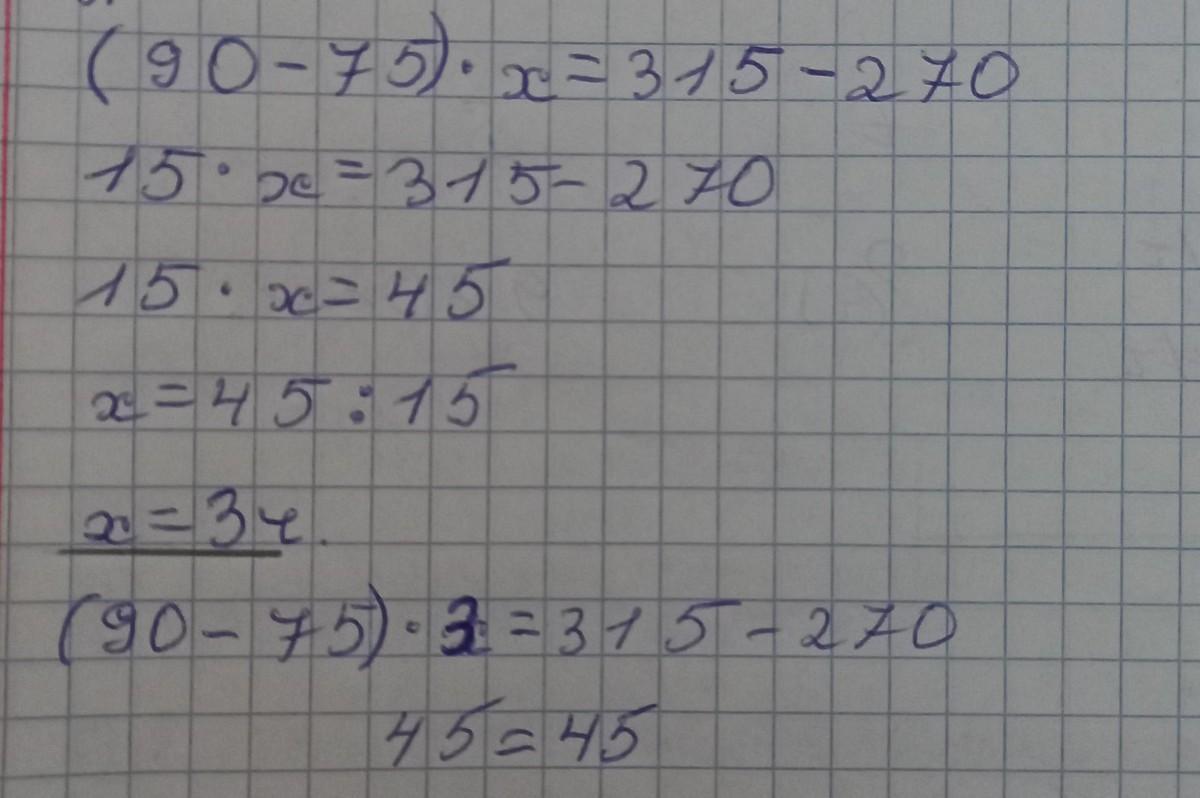 (90-75)·x=315-270
15·x=315-270
15·x=45
x=45:15
x=3ч.
(90-75)·3=315-270
45=45